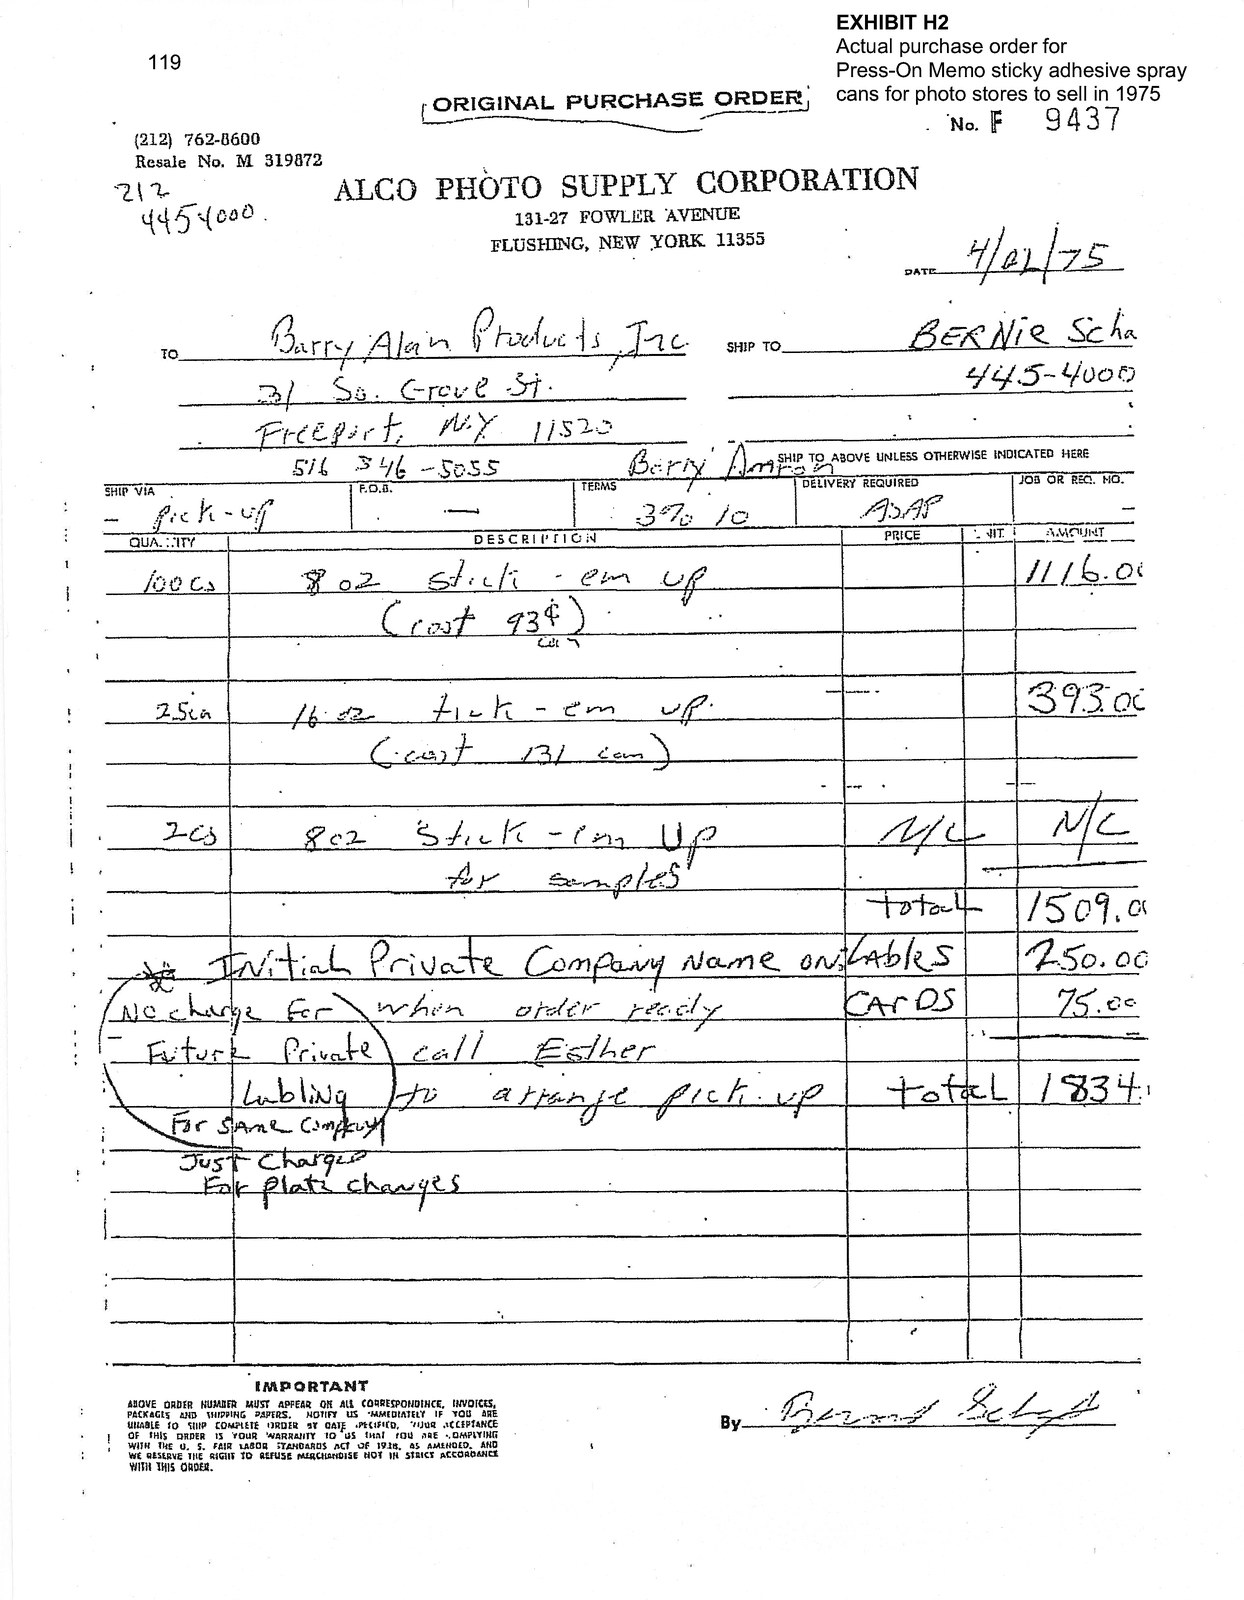 EXHIBIT H2
Actual purchase order for
Press-On Memo sticky adhesive spray
cans for photo stores to sell in 1975
119
ORIGINAL PURCHASE ORDER
No. F 9437
(212) 762-8600
Resale No. M 319872
212
445 4000
ALCO PHOTO SUPPLY CORPORATION
131-27 FOWLER AVENUE
FLUSHING, NEW YORK 11355
DATE 4/02/75
TO Barry Alan Products, Inc
SHIP TO BERNiE Scha
31 So. Grove St.
445-4000
Freeport, N.Y. 11520
516 546-5055 Barry Amron
SHIP TO ABOVE UNLESS OTHERWISE INDICATED HERE
SHIP VIA F.O.B. TERMS DELIVERY REQUIRED JOB OR REQ. NO.
- pick-up — 3% 10 ASAP -
QUANTITY DESCRIPTION PRICE UNIT AMOUNT
100 cs 8 oz stick-em up 1116.00
(cost 93¢)
can
16 oz tick-em up 393.00
(cost 131 can)
2 cs 8 oz Stick-em Up N/C N/C
for samples
total 1509.0
INitial Private Company Name ON LAbles 250.00
No charge For when order ready CArDS 75.00
Future Private call Esther
Labling to arrange pick-up total 1834.
For SAme Company
Just Charge
For plate changes
IMPORTANT
ABOVE ORDER NUMBER MUST APPEAR ON ALL CORRESPONDENCE, INVOICES,
PACKAGES AND SHIPPING PAPERS. NOTIFY US IMMEDIATELY IF YOU ARE
UNABLE TO SHIP COMPLETE ORDER BY DATE SPECIFIED. YOUR ACCEPTANCE
OF THIS ORDER IS YOUR WARRANTY TO US THAT YOU ARE COMPLYING
WITH THE U. S. FAIR LABOR STANDARDS ACT OF 1938, AS AMENDED, AND
WE RESERVE THE RIGHT TO REFUSE MERCHANDISE NOT IN STRICT ACCORDANCE
WITH THIS ORDER.
By